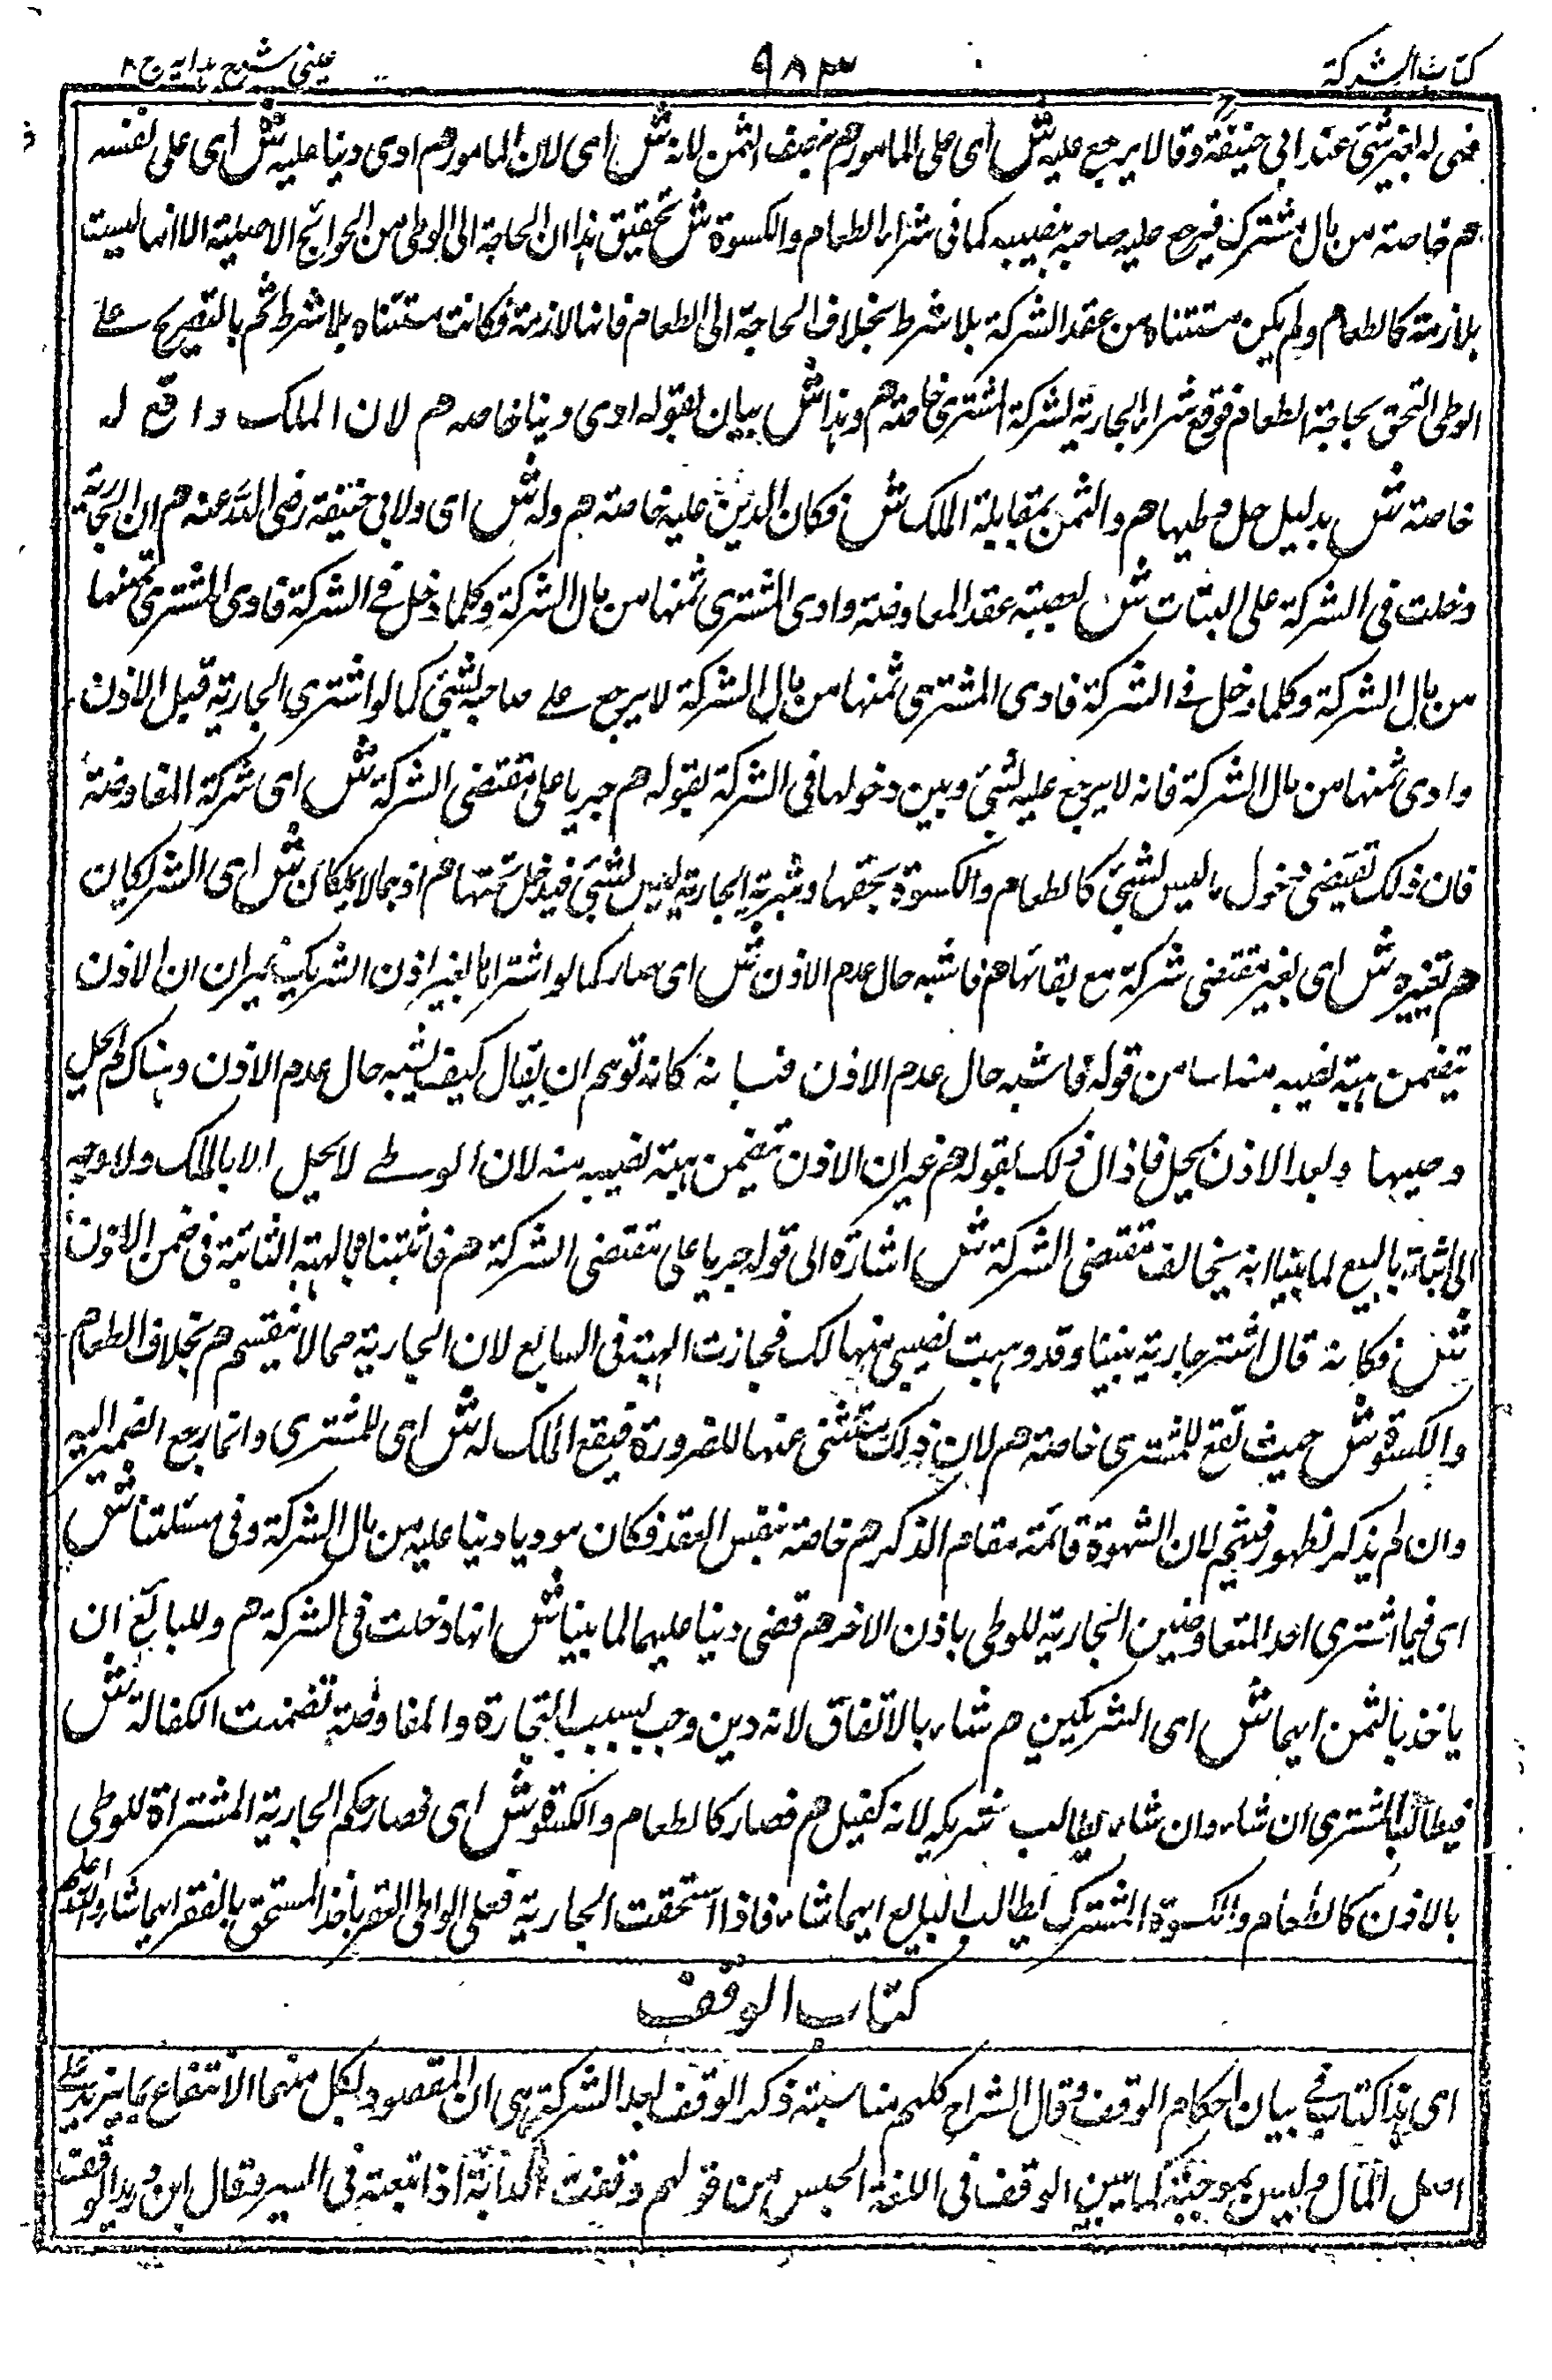 كتاب الشركة
٩٨٣
عينى شرح هدايه ج ٢
فهى له بغير شئ عند ابى حنيفة وقالا يرجع عليه ش اى على المامور هم بنصف الثمن لانه ش اى لان المامور هم ادى دينا عليه ش اى على نفسه
هم خاصته من مال مشترك فيرجع عليه صاحبه بنصيبه كما فى شراء الطعام والكسوة ش تحقيق هذا ان الحاجة الى الوطى من الحوائج الاصلية الا انها ليست
بلازمة كالطعام ولم يكن مستثناه من عقد الشركة بلا شرط بخلاف الحاجة الى الطعام فانها لازمة فكانت مستثناه بلا شرط ثم بالتصريح على
الوطى التحق بحاجة الطعام فوقع شراء الجارية لشركة المشترى خاصة هم وهذا ش بيان لقوله ادى دينا خاصه هم لان الملك واقع له
خاصة ش بدليل حل وطيها هم والثمن بمقابلة الملك ش فكان الدين عليه خاصته هم وله ش اى ولابى حنيفة رضى الله عنه هم ان الجارية
دخلت فى الشركة على البتات ش لصحته عقد المعاوضة وادى المشترى ثمنها من مال الشركة وكلما دخل فى الشركة فادى المشترى ثمنها
من مال الشركة وكلما دخل فى الشركة فادى المشترى ثمنها من مال الشركة لا يرجع على صاحبه بشئ كما لو اشترى الجارية قبل الاذن
وادى ثمنها من مال الشركة فانه لا يرجع عليه بشئ وبين دخولها فى الشركة لقوله هم جريا على مقتضى الشركة ش اى شركة المفاوضة
فان ذلك تقتضى دخول ما ليس بشئ كالطعام والكسوة بحقها وشرية الجارية ليس بشئ فيدخل تحتها هم اذ هما لا يملكان ش اى الشريكان
هم تغييره ش اى تغير مقتضى شركة مع بقائها هم فاشبه حال عدم الاذن ش اى صار كما لو اشتراها بغير اذن الشريك غير ان الاذن
يتضمن هبة نصيبه منه من قوله فاشبه حال عدم الاذن كانه توهم ان يقال كيف يشبه حال عدم الاذن وهناك لم يحل
وطيها وبعد الاذن يحل فازال ذلك بقوله هم غير ان الاذن يتضمن هبة نصيبه منه لان الوطے لا يحل الا بالملك ولا وجه
الى اثباته بالبيع لما بينا انه يخالف مقتضى الشركة ش اشارة الى قوله جريا على مقتضى الشركة هم فاثبتناه بالهبة الثابتة فى ضمن الاذن
ش فكانه قال اشتر جارية بيننا وقد وهبت نصيبى منها لك فجازت الهبة فى الشايع لان الجارية مما لا ينقسم هم بخلاف الطعام
والكسوة ش حيث تقع للمشترى خاصته هم لان ذلك مستثنى عنها للضرورة فيقع الملك له ش اى للمشترى وانما رجع الضمير اليه
وان لم يذكر لظهور فيثم لان الشهرة قائمة مقام الذكر هم خاصته بنفس العقد فكان موديا دينا عليه من مال الشركة وفى مسئلتنا ش
اى فيما اشترى احد المتعاوضين الجارية للوطى باذن الاخر هم قضى دينا عليهما لما بينا ش انها دخلت فى الشركة هم وللبائع ان
ياخذ بالثمن ايهما ش اى الشريكين هم شاء بالاتفاق لانه دين وجب بسبب التجارة والمفاوضة تضمنت الكفالة ش
فيطالب المشترى ان شاء وان شاء يطالب شريكه لانه كفيل هم فصار كالطعام والكسوة ش اى فصار حكم الجارية المشتراة للوطى
بالاذن كالطعام والكسوة المشترك يطالب البايع ايهما شاء فاذا استحقت الجارية فعلى الواطى العقر ياخذ المستحق بالعقر ايهما شاء والله اعلم
كتاب الوقف
اى هذا كتاب فى بيان احكام الوقف وقال الشراح كلهم مناسبته ذكر الوقف بعد الشركة هى ان المقصود بكل منهما الانتفاع بما يزيد على
اصل المال وليس بموجبه كما تبين الوقف فى اللغة الحبس من قولهم وقفت الدابة اذا تبعته فى السير وقال ابن دريد الوقف